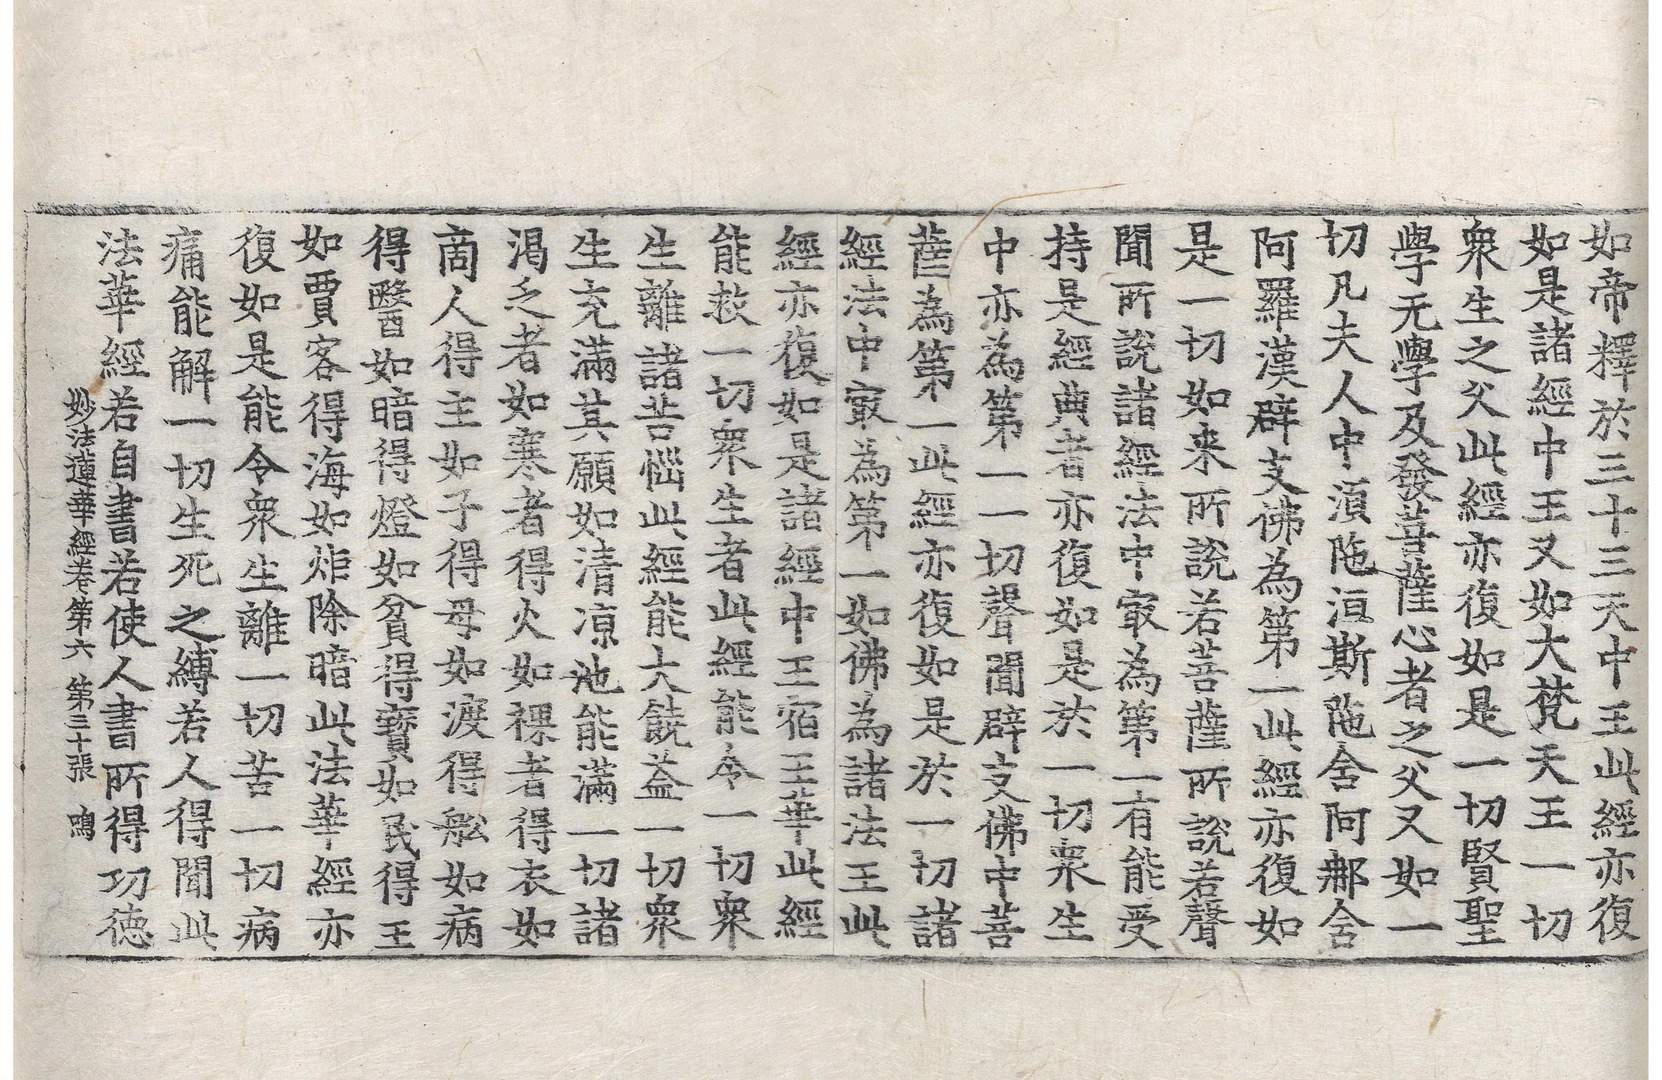 如帝釋於三十三天中王此經亦復
如是諸經中王又如大梵天王一切
衆生之父此經亦復如是一切賢聖
學无學及發菩薩心者之父又如一
切凡夫人中湏陁洹斯陁含阿那含
阿羅漢辟支佛為第一此經亦復如
是一切如来所說若菩薩所說若聲
聞所說諸經法中㝡為第一有能受
持是經典者亦復如是於一切衆生
中亦為第一一切聲聞辟支佛中菩
薩為第一此經亦復如是於一切諸
經法中㝡為第一如佛為諸法王此
經亦復如是諸經中王宿王華此經
能救一切衆生者此經能令一切衆
生離諸苦惱此經能大饒益一切衆
生充滿其願如清凉池能滿一切諸
渴乏者如寒者得火如裸者得衣如
商人得主如子得母如渡得舩如病
得醫如暗得燈如貧得寶如民得王
如賈客得海如炬除暗此法華經亦
復如是能令衆生離一切苦一切病
痛能解一切生死之縛若人得聞此
法華經若自書若使人書所得功德
妙法蓮華經卷第六 第三十張 鳴